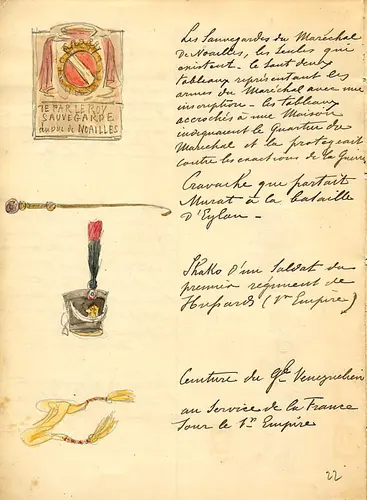 DE PAR LE ROY
SAUVEGARDE
du DUC de NOAILLES
Les Sauvegardes du Maréchal
de Noailles, les seules qui
existent - le sont deux
tableaux représentant les
armes du Maréchal avec une
inscription - les tableaux
accrochés à une Maison
indiquaient le Quartier du
Maréchal et la protégeait
contre les exactions de la Guerre
Cravache que portait
Murat à la bataille
d'Eylau -
Shako d'un Soldat du
premier régiment de
Hussards (1er Empire)
Ceinture du Gal
au Service de la France
sous le 1er Empire
22